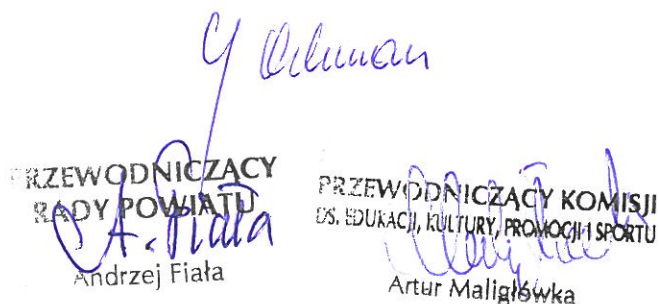 PRZEWODNICZĄCY
RADY POWIATU
A. Fiała
Andrzej Fiała
PRZEWODNICZĄCY KOMISJI
DS. EDUKACJI, KULTURY, PROMOCJI I SPORTU
Artur Maligłówka